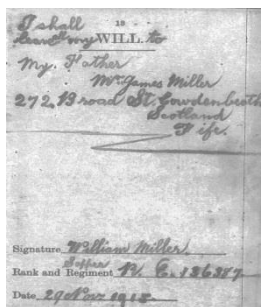 I shall
13
leave my WILL to
My Father
Mr James Miller
272, Broad St. Cowdenbeath
Scotland
Fife.
Signature William Miller.
Sapper
Rank and Regiment R. E. 136387
Date 29 Nov 1915